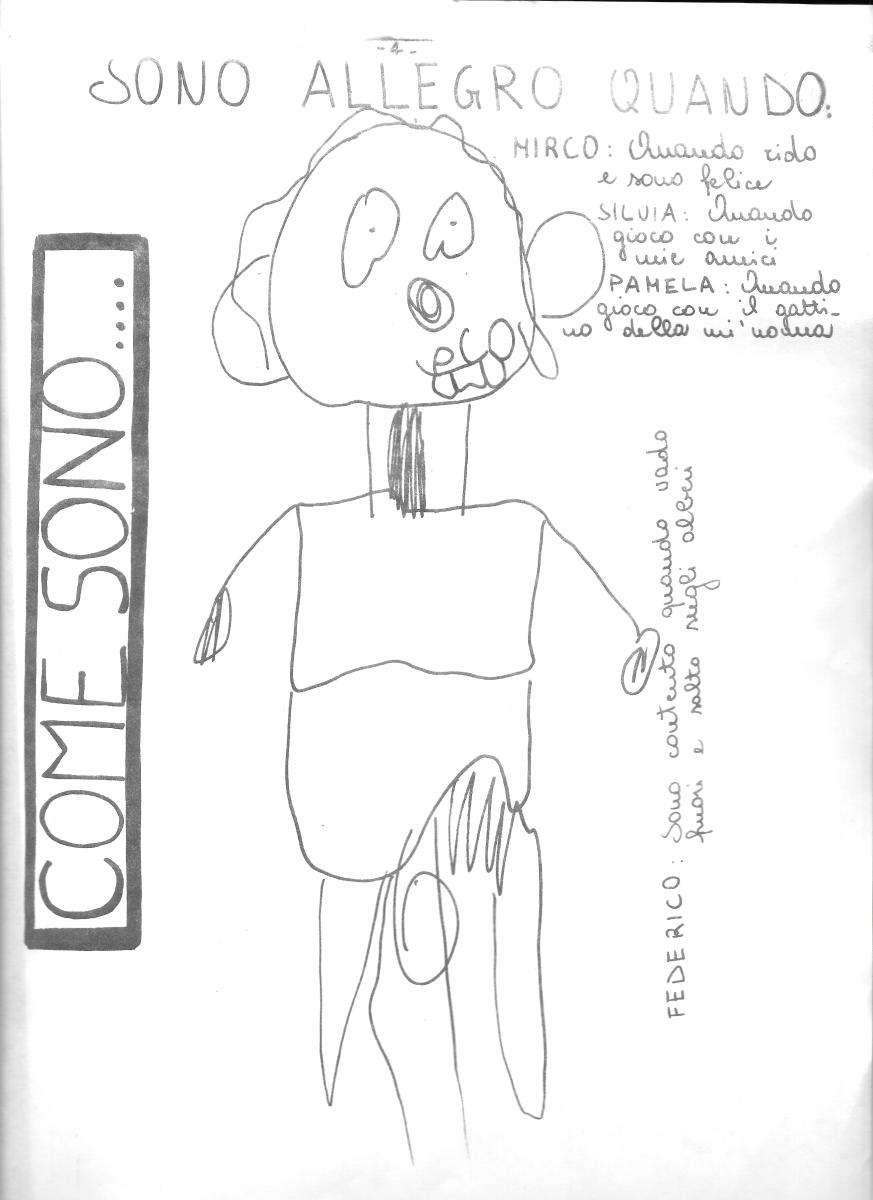 - 4 -
SONO ALLEGRO QUANDO:
MIRCO: Quando rido
e sono felice
SILVIA: Quando
gioco con i
mie amici
PAMELA: Quando
gioco con il gatti-
no della mi' nonna
COME SONO....
FEDERICO: Sono contento quando vado
fuori e salto negli alberi